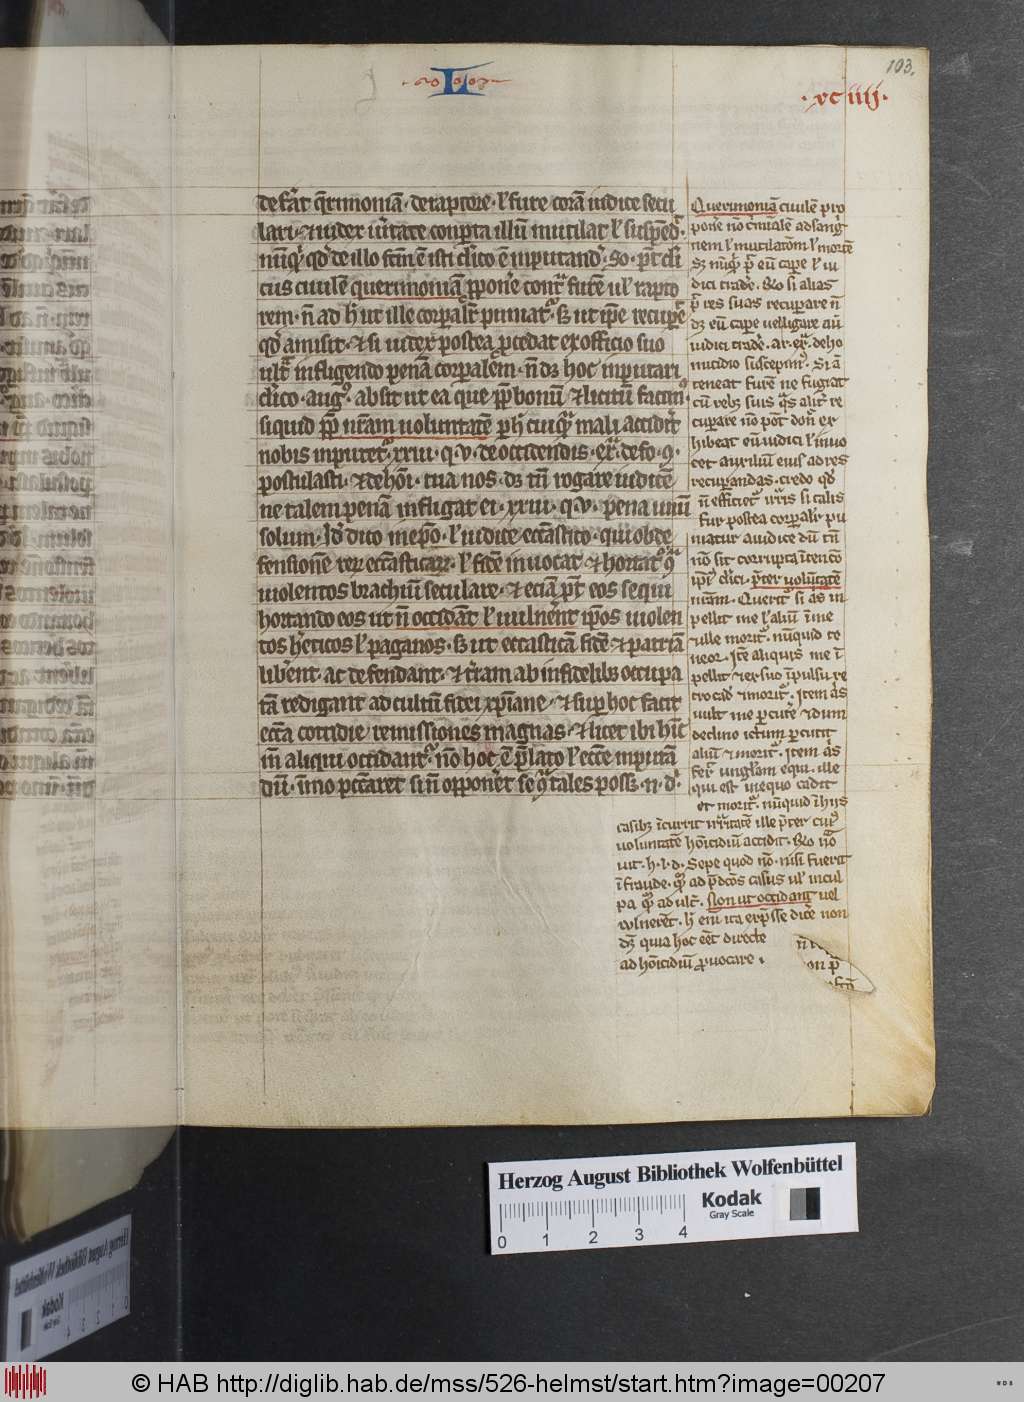 103.
I
xciiii
de fac̄ q̄rimoniā · de raptore · ł fure corā iudice secu
lari · ⁊ iudex u̓itate conpta illū mutilat ł suspēd̓
cus ciuilem querimoniā p̱pone contͣ furē ul̓ rapto
rem · n̄ ad h̓ ut ille corpal̓r puniat̓ · sƷ ut ip̄e recupet
qd̓ amisit · ⁊ si iudex postea p̱cedat ex officio suo
ultͣ infligendo penā corpalem · n̄ dƷ hoc inputari
cl̓ico · aug⁹ · absit ut ea que pp̄ bonū ⁊ licitū facim⁹
siquid pp̄ nr̄am uoluntatē p̱ h̓ cuiqͣ mali accidit
nobis inputet̓ · xxiii · q · v · de occidendis · ex̄ · de fo · 9 ·
postulasti · ⁊ de hōi · tua nos · dƷ tn̄ rogare iudicē
ne talem penā infligat ei · xxiii · q · v · pena unū
solum · Id̓ dico in ep̄o · ł iudice eccl̓astico · qui ob de
fensionē rerͮ eccl̓asticarͮ · ł fidei inuocat ⁊ hortat̓ qͣ
uiolentos brachiū seculare · ⁊ eciā pt̓ eos sequi
hortando eos ut n̄ occidāt ł uulnēnt ip̄os uiolen
tos h̓eticos ł paganos · sƷ ut eccl̓asticā fidē ⁊ patriā
lib̓ent · ac defendant · ⁊ t̓ram ab infidelibƷ occupa
tā redigant ad cultū fidei xp̄iane · ⁊ sup hoc facit
ecc̄a cottidie remissiones magnas · ⁊ licet ibi hīt
in̄ aliqui occidant̓ · nō hoc ē p̄lato ł ecc̄e inputā
dū · ī̄mo peccaret si n̄ opponēt se qͣ tales possƷ · n · d̓
Querimoniā ciuilē pro
pone nō c̓minalē ad sang̓
nem ł mutilatōm ł mortē
dici trade · Rō si alias
p̄ res suas recuperare n̄
dƷ eū cape uel ligare aū
iudici trade · ar · ex̄ · de ho
micidio suscepim⁹ · Si ā
teneat furē ne fugiat
cū rebƷ suis qͣs alit̓ re
cupare nō pōt don̄ ex
hibeat eū iudici ł inuo
cet auxiliū eius ad res
recupandas · credo qd̓
n̄ efficiet̓ irr̄is si talis
fur postea corpal̓r pu
niatur a iudice dū tn̄
nō sit corrupta ītencō
ipī⁹ cl̓ici · p̄ter uolūtatē
nr̄am · Querit̓ si ās in
pellit me ł aliū ī me
⁊ ille morit̓ · nūquid te
neor · Itē aliquis me ī
pellit ⁊ ex suo īpulsu re
trocad̓ ⁊ morit̓ · Item ās
uult me p̱cutē ⁊ dum
declino ictum p̱cutit
aliū ⁊ morit̓ · Item ās
fert̓ ungl̓am equi · ille
qui est in equo cadit
et morit̓ · nūquid ī hiis
casibƷ īcurrit irr̄itatē ille p̄ter cui⁹
uoluntatē hōicidiū accidit · Rō nō
uit · h · l · d · Sepe quod nō · nisi fuerit
ī fraude · qͣ ad p̄dcōs casus ul̓ in cul
pa qͣ ad ult̓ · Non ut occidant uel
uulnerēt · h̓ eni ita exp̄sse dic̓e non
dƷ quia hoc eēt directe
ad hōicidiū p̱uocare ·
Herzog August Bibliothek Wolfenbüttel
Kodak
Gray Scale
0 1 2 3 4
© HAB http://diglib.hab.de/mss/526-helmst/start.htm?image=00207